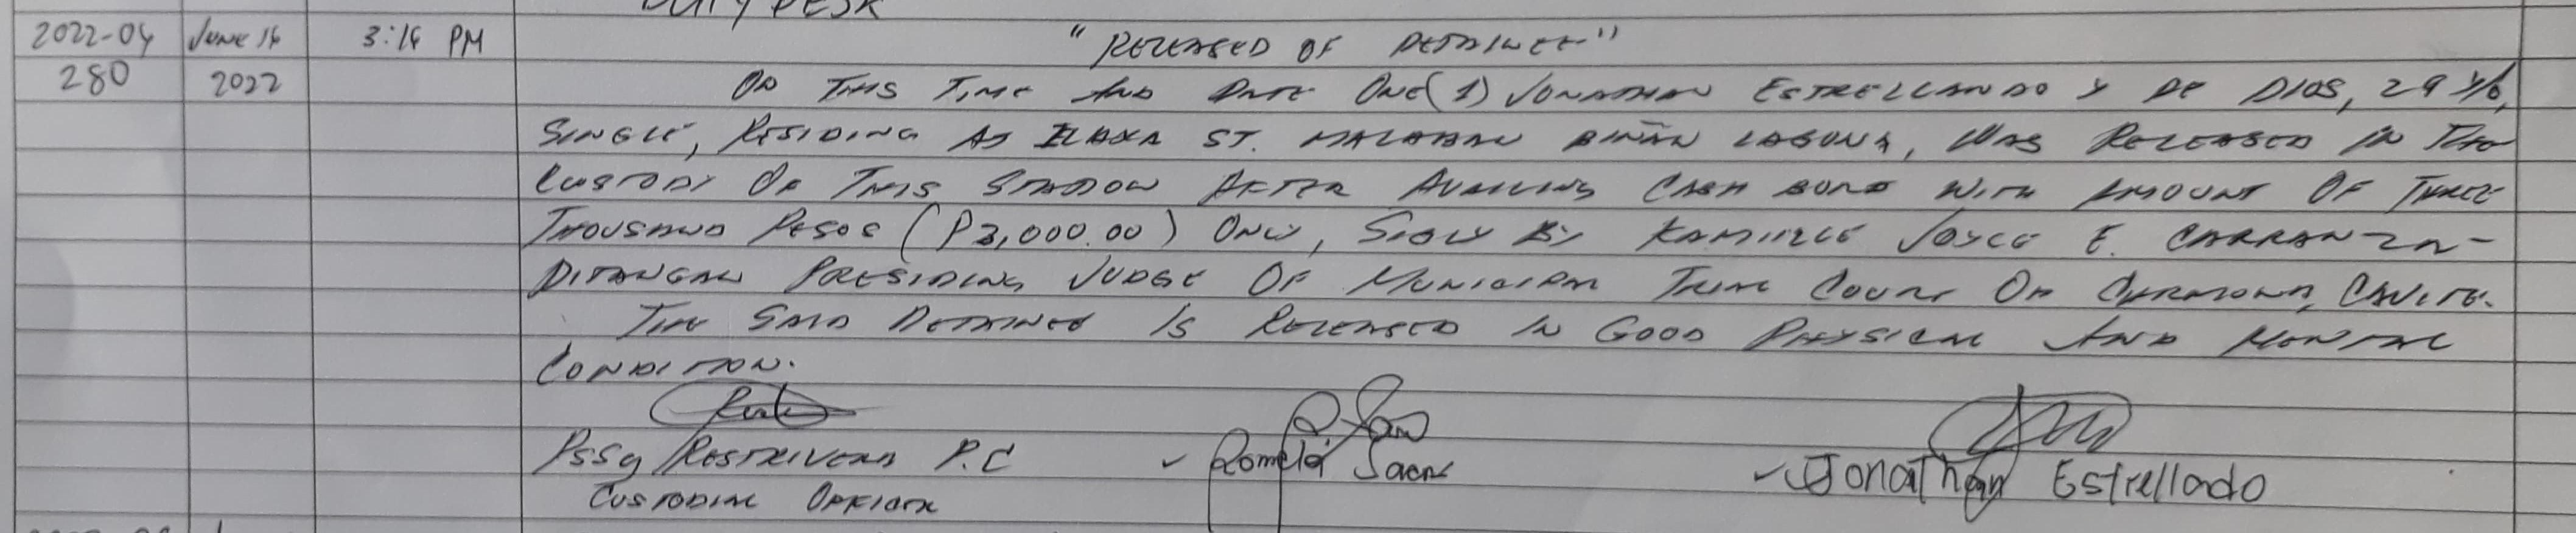 DUTY DESK
2022-04 JUNE 14 3:14 PM "RELEASED OF DETAINEE"
280 2022 ON THIS TIME AND DATE ONE (1) JONATHAN ESTRELLANDO Y DE DIOS, 29 Y/O,
SINGLE, RESIDING AT ST. MALABAN BIÑAN LAGUNA, WAS RELEASED IN THE
CUSTODY OF THIS STATION AFTER AVAILING CASH BOND WITH AMOUNT OF THREE
THOUSAND PESOS (P3,000.00) ONLY, SIGN BY JOYCE E. CARRANZA-
DITANGAN PRESIDING JUDGE OF MUNICIPAL TRIAL COURT OF CARMONA, CAVITE.
THE SAID DETAINEE IS RELEASED IN GOOD PHYSICAL AND MENTAL
CONDITION.
PSSg RESTRIVERA P.C Romela Saens Jonathan Estrellado
CUSTODIAL OFFICER